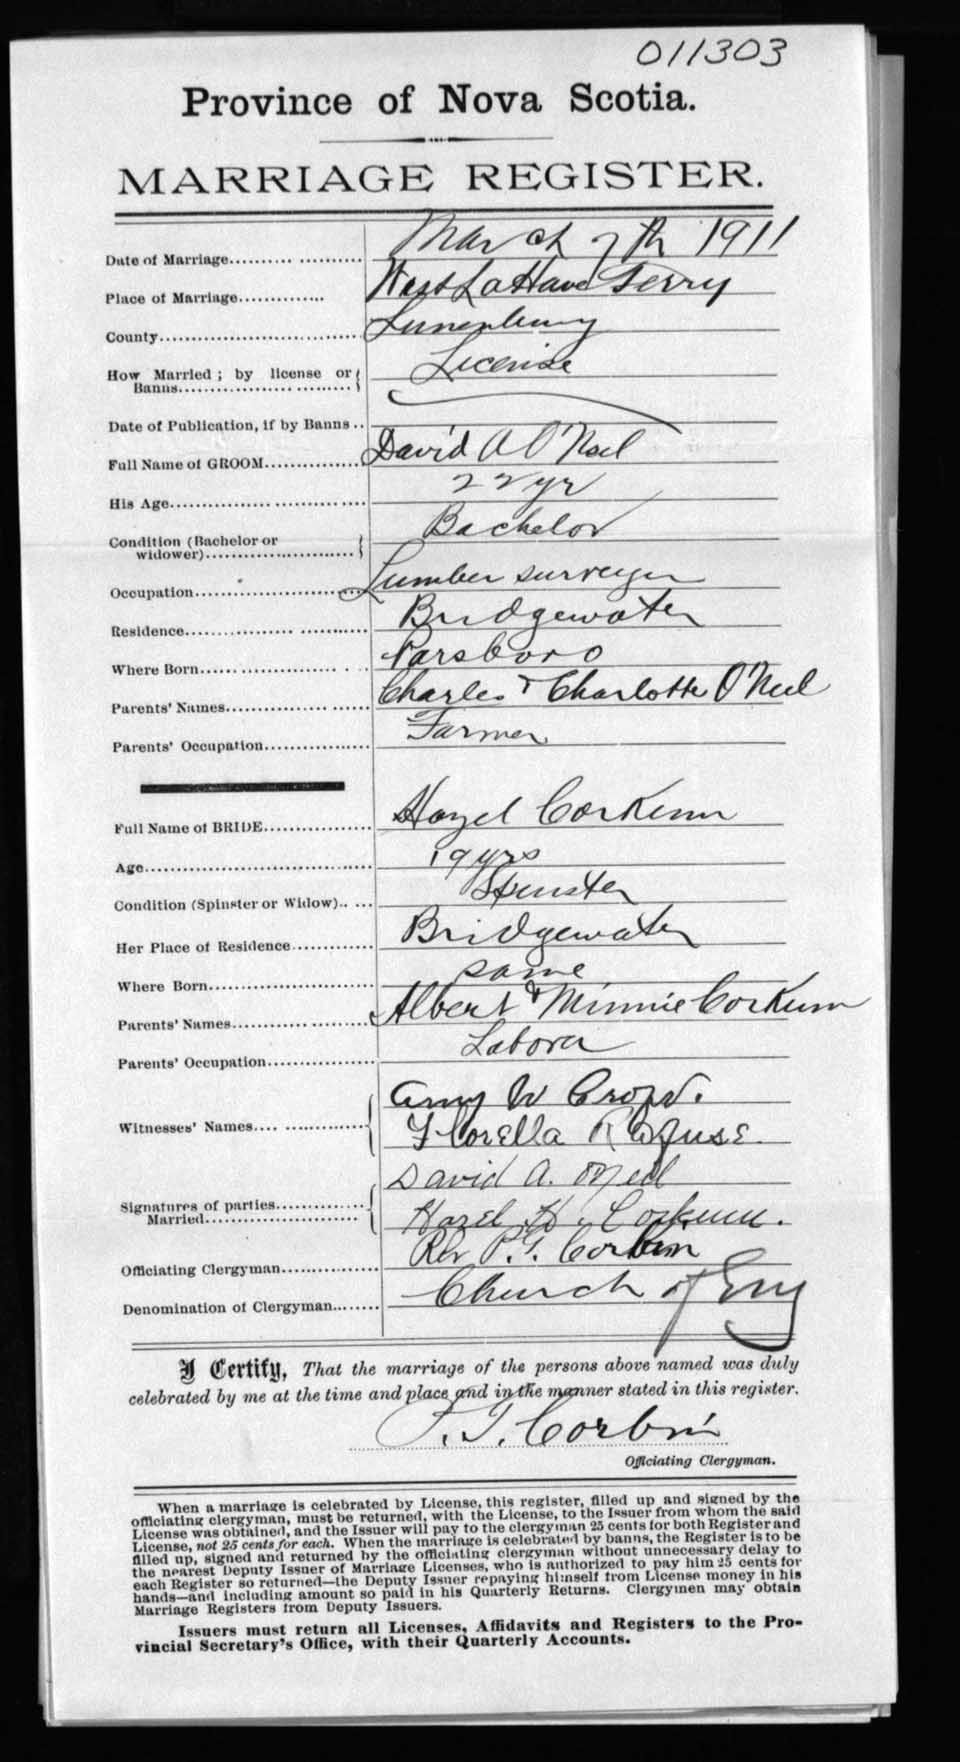 011303
Province of Nova Scotia.
MARRIAGE REGISTER.
Date of Marriage.......... ........... March 7th 1911
Place of Marriage............. West LaHave Ferry
County............................. Lunenburg
How Married ; by license or License
Banns.......................
Date of Publication, if by Banns ..
Full Name of GROOM.............. David A O'Neil
His Age............................. 22 yr
Condition (Bachelor or Bachelor
widower).......................
Occupation........................ Lumber surveyer
Residence.......................... Bridgewater
Where Born....................... Parsboro
Parents' Names.................... Charles & Charlotte O'Neil
Parents' Occupation................ Farmer
Full Name of BRIDE................ Hazel Corkum
Age................................. 19 yrs
Condition (Spinster or Widow).. ... Spinster
Her Place of Residence............ Bridgewater
Where Born........................ same
Parents' Names.................... Albert & Minnie Corkum
Parents' Occupation................ Labora
Witnesses' Names.... ............. Amy W Crop.
Florella Rafuse.
David A. O'Neil
Signatures of parties.............
Married....................... Hazel H. Corkum.
Officiating Clergyman.............. Rev P.G. Corbin
Denomination of Clergyman........ Church of Eng
I Certify, That the marriage of the persons above named was duly
celebrated by me at the time and place and in the manner stated in this register.
Corbin
Officiating Clergyman.
When a marriage is celebrated by License, this register, filled up and signed by the
officiating clergyman, must be returned, with the License, to the Issuer from whom the said
License was obtained, and the Issuer will pay to the clergyman 25 cents for both Register and
License, not 25 cents for each. When the marriage is celebrated by banns, the Register is to be
filled up, signed and returned by the officiating clergyman without unnecessary delay to
the nearest Deputy Issuer of Marriage Licenses, who is authorized to pay him 25 cents for
each Register so returned—the Deputy Issuer repaying himself from License money in his
hands—and including amount so paid in his Quarterly Returns. Clergymen may obtain
Marriage Registers from Deputy Issuers.
Issuers must return all Licenses, Affidavits and Registers to the Pro-
vincial Secretary's Office, with their Quarterly Accounts.